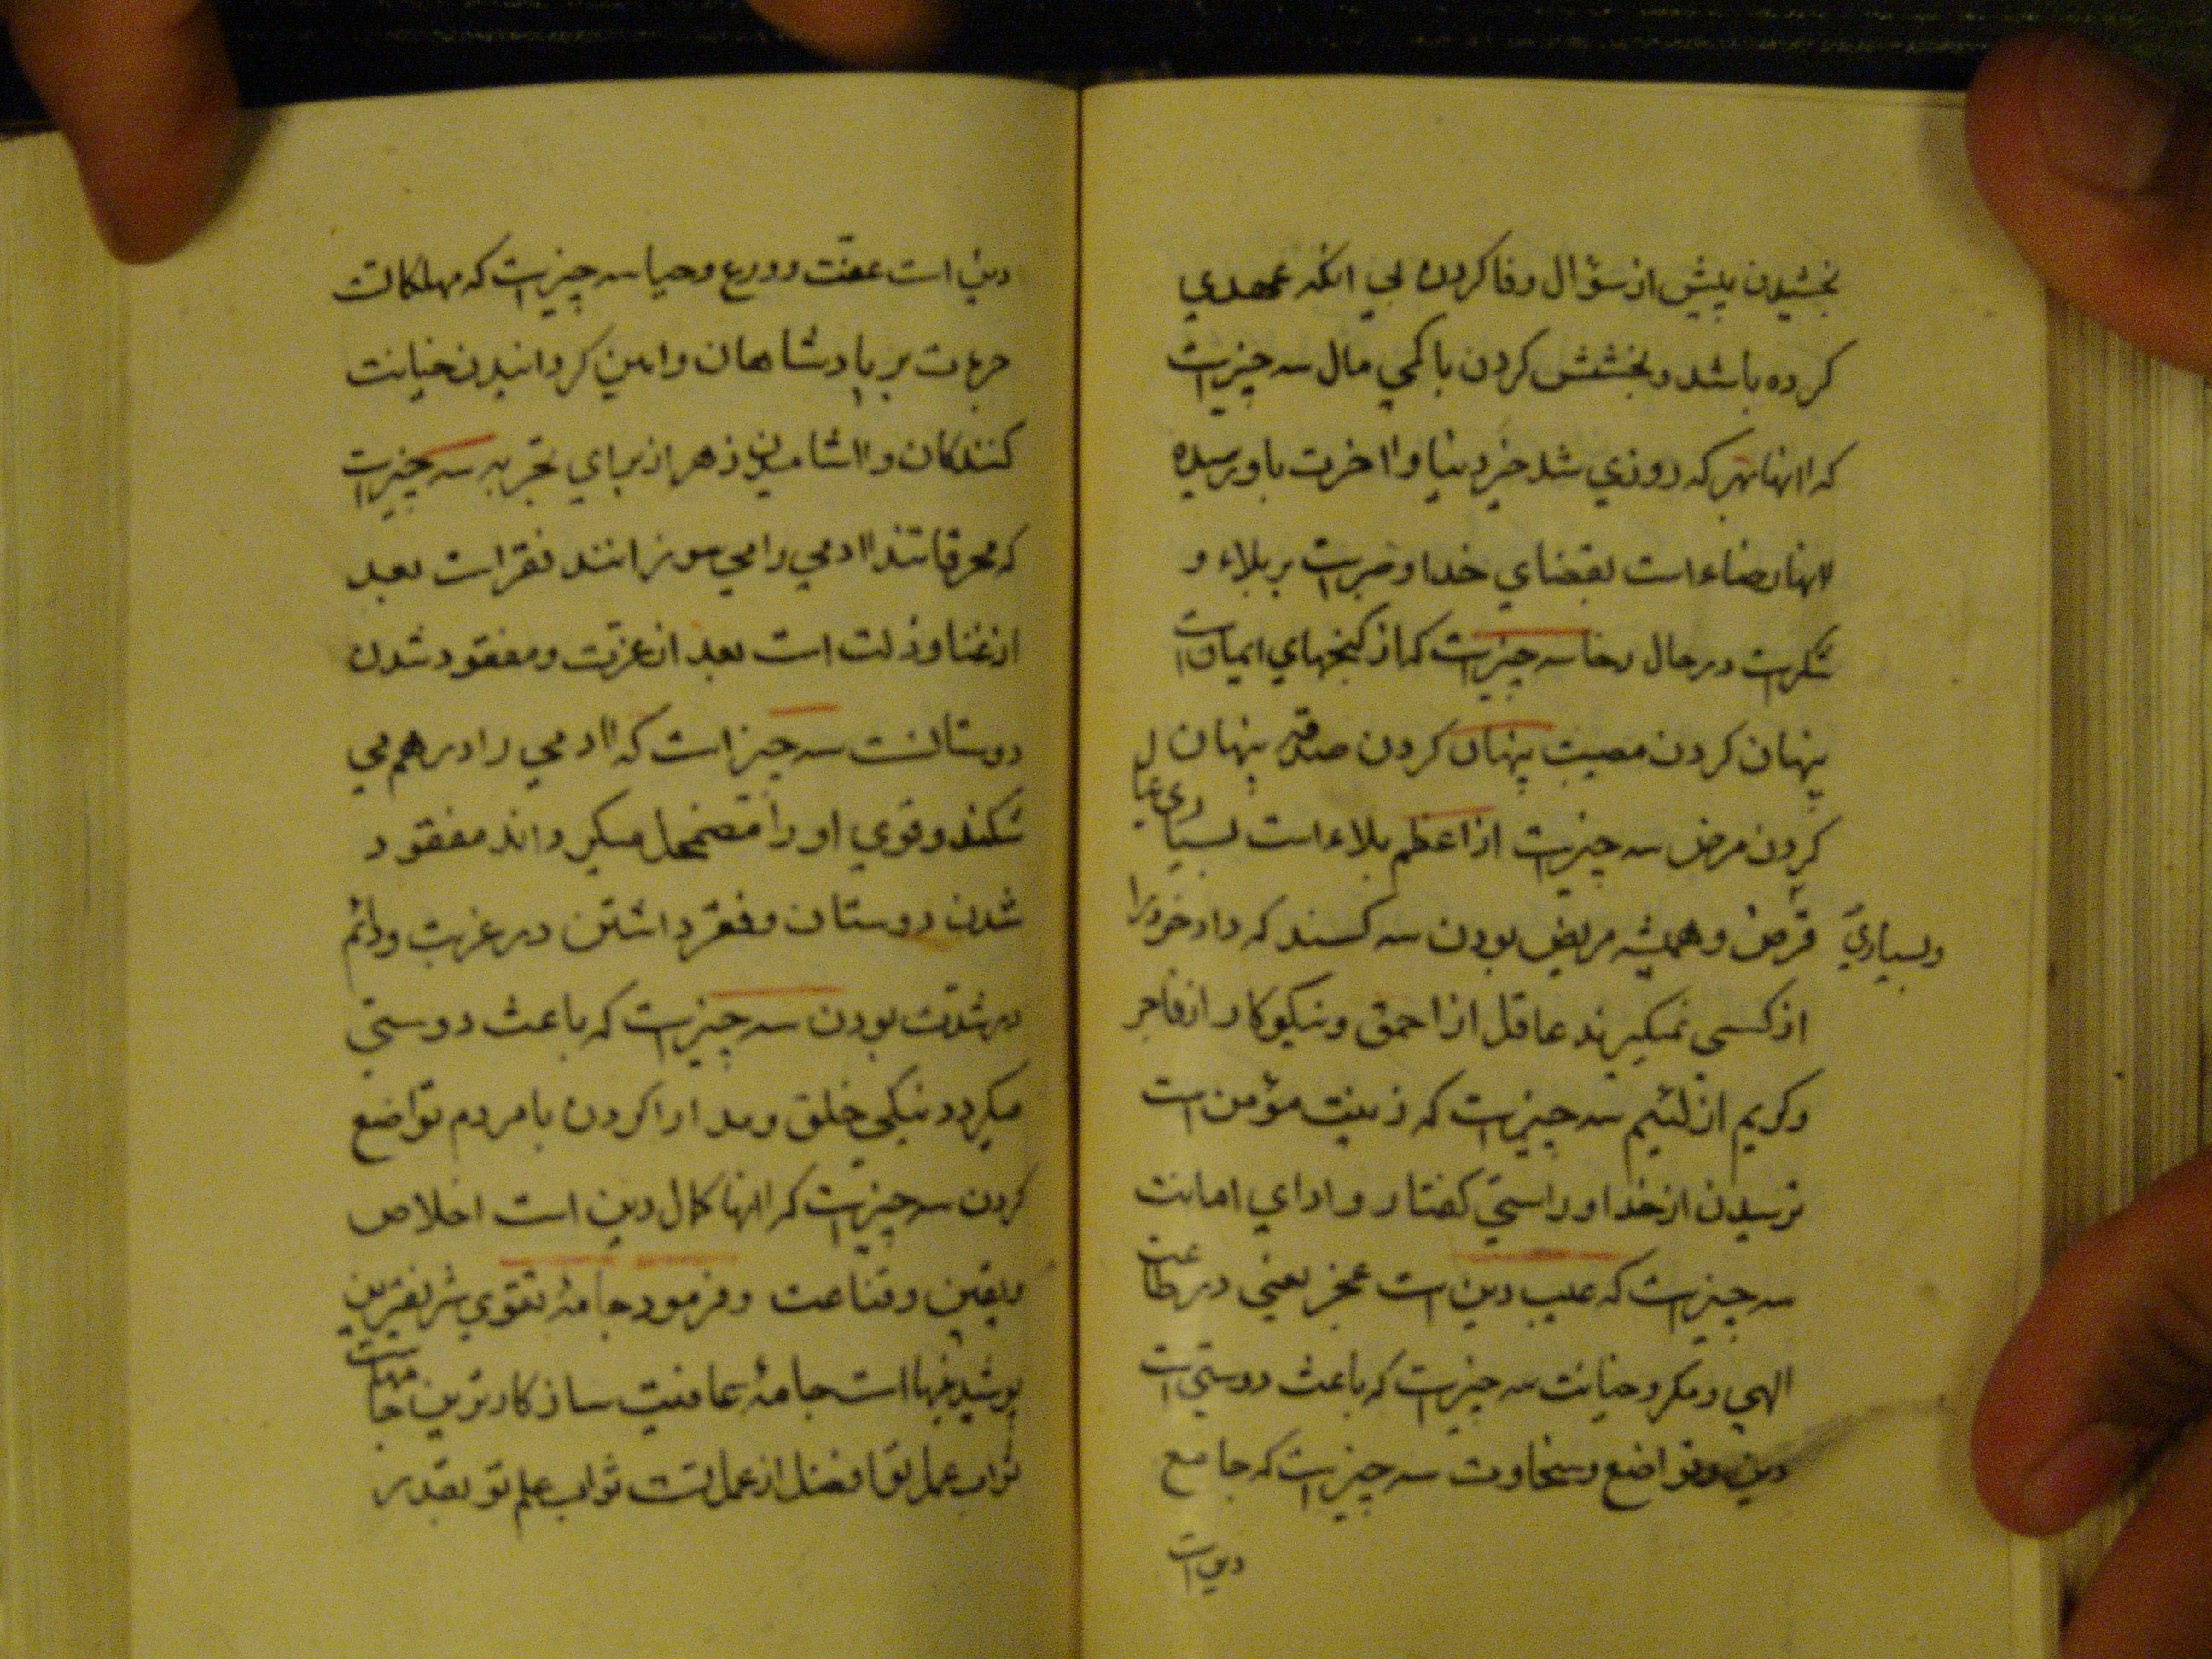 بخشیدن پیش از سؤال وفا کردن بی انکه عهدی
کرده باشد و بخشش کردن با کمی مال سه چیزاست
که اانها بهر که روزی شد خیر دنیا و ااخرت باو رسیده
اانها رضاء است بقضای خدا و صبر است بر بلاء و
شکر است در حال رخا سه چیز است که از کنجهای ایمان است
پنهان کردن مصیبت پنهان کردن صدقه پنهان
کردن مرض سه چیز است از اعظم بلاء است بسیاری عیال
و بسیاری قرض و همیشه مریض بودن سه کسند که داد خود را
از کسی نمیکیرند عاقل از احمق و نیکوکار از فاجر
و کریم از لئیم سه چیز است که زینت مؤمن است
ترسیدن از خدا و راستی کفتار و ادای امانت
سه چیز است که عیب دین است عجز یعنی در طاعت
الهی و مکر و خیانت سه چیز است که باعث دوستی است
دین و تواضع و سخاوت سه چیز است که جامع
دین است
دین است عفت و ورع و حیا سه چیز است که مهلکات
جرءت بر پادشاهان و امین کردانیدن خیانت
کنندکان و ااشامیدن زهر از برای تجربه سه چیز است
که محرقاتند اادمی را می سوزانند فقر است بعد
از غنا و ذلت است بعد از عزت و مفقود شدن
دوستانست سه چیز است که اادمی را درهم می
شکند و قوی او را مضمحل میکرداند مفقود
شدن دوستان و فقر داشتن در غربت و دائم
در شدت بودن سه چیز است که باعث دوستی
میکردد نیکی خلق و مدارا کردن با مردم تواضع
کردن سه چیز است که اانها کمال دین است اخلاص
و یقین و قناعت و فرمود جامۀ تقوی شریفترین
پوشیدنیها است جامۀ عافیت سازکارترین جامهاست
ثواب عمل تو افضل از عمل تست ثواب علم تو بقدر